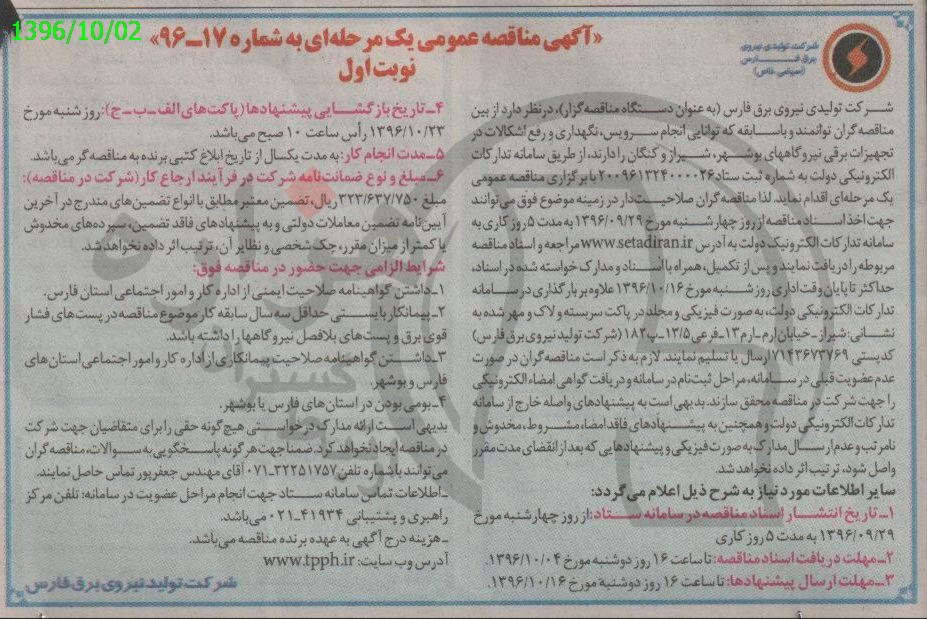 1396/10/02
«آگهی مناقصه عمومی یک مرحله‌ای به شماره ۱۷-۹۶»
نوبت اول
شرکت تولیدی نیروی
برق فارس
(سهامی خاص)
شرکت تولیدی نیروی برق فارس (به عنوان دستگاه مناقصه‌گزار)، درنظر دارد از بین
مناقصه‌گران توانمند و باسابقه که توانایی انجام سرویس، نگهداری و رفع اشکالات در
تجهیزات برقی نیروگاههای بوشهر، شیراز و کنگان را دارند، از طریق سامانه تدارکات
الکترونیکی دولت به شماره ثبت ستاد ۲۰۰۹۶۱۳۲۴۰۰۰۰۲۶ با برگزاری مناقصه عمومی
یک مرحله‌ای اقدام نماید. لذا مناقصه‌گران صلاحیت‌دار در زمینه موضوع فوق می‌توانند
جهت اخذ اسناد مناقصه از روز چهارشنبه مورخ ۱۳۹۶/۰۹/۲۹ به مدت ۵ روز کاری به
سامانه تدارکات الکترونیک دولت به آدرس www.setadiran.ir مراجعه و اسناد مناقصه
مربوطه را دریافت نمایند و پس از تکمیل، همراه با اسناد و مدارک خواسته شده در اسناد،
حداکثر تا پایان وقت اداری روز شنبه مورخ ۱۳۹۶/۱۰/۱۶ علاوه بر بارگذاری در سامانه
تدارکات الکترونیکی دولت، به صورت فیزیکی و مجلد در پاکت سربسته و لاک و مهر شده به
نشانی: شیراز-خیابان ارم-ارم ۱۳-فرعی ۱۳/۵-پ ۱۸۲ (شرکت تولید نیروی برق فارس)
کدپستی ۷۱۴۳۶۷۳۷۶۹ ارسال یا تسلیم نمایند. لازم به ذکر است مناقصه‌گران در صورت
عدم عضویت قبلی در سامانه، مراحل ثبت‌نام در سامانه و دریافت گواهی امضاء الکترونیکی
را جهت شرکت در مناقصه محقق سازند. بدیهی است به پیشنهادهای واصله خارج از سامانه
تدارکات الکترونیکی دولت و همچنین به پیشنهادهای فاقد امضا، مشروط، مخدوش و
نامرتب و عدم ارسال مدارک به صورت فیزیکی و پیشنهادهایی که بعد از انقضای مدت مقرر
واصل شود، ترتیب اثر داده نخواهد شد.
سایر اطلاعات مورد نیاز به شرح ذیل اعلام می‌گردد:
۱-تاریخ انتشار اسناد مناقصه در سامانه ستاد: از روز چهارشنبه مورخ
۱۳۹۶/۰۹/۲۹ به مدت ۵ روز کاری
۲-مهلت دریافت اسناد مناقصه: تا ساعت ۱۶ روز دوشنبه مورخ ۱۳۹۶/۱۰/۰۴.
۳-مهلت ارسال پیشنهادها: تا ساعت ۱۶ روز دوشنبه مورخ ۱۳۹۶/۱۰/۱۶.
۴-تاریخ بازگشایی پیشنهادها (پاکت‌های الف-ب-ج): روز شنبه مورخ
۱۳۹۶/۱۰/۲۳ رأس ساعت ۱۰ صبح می‌باشد.
۵-مدت انجام کار: به مدت یکسال از تاریخ ابلاغ کتبی برنده به مناقصه‌گر می‌باشد.
۶-مبلغ و نوع ضمانت‌نامه شرکت در فرآیند ارجاع کار (شرکت در مناقصه):
مبلغ ۳۲۳/۶۳۷/۷۵۰ ریال، تضمین معتبر مطابق با انواع تضمین‌های مندرج در آخرین
آیین‌نامه تضمین معاملات دولتی و به پیشنهادهای فاقد تضمین، سپرده‌های مخدوش
یا کمتر از میزان مقرر، چک شخصی و نظایر آن، ترتیب اثر داده نخواهد شد.
شرایط الزامی جهت حضور در مناقصه فوق:
۱-داشتن گواهینامه صلاحیت ایمنی از اداره کار و امور اجتماعی استان فارس.
۲-پیمانکار بایستی حداقل سه سال سابقه کار موضوع مناقصه در پست‌های فشار
قوی برق و پست‌های بلافصل نیروگاهها را داشته باشد.
۳-داشتن گواهینامه صلاحیت پیمانکاری از اداره کار و امور اجتماعی استان‌های
فارس و بوشهر.
۴-بومی بودن در استان‌های فارس یا بوشهر.
بدیهی است ارائه مدارک درخواستی هیچ‌گونه حقی را برای متقاضیان جهت شرکت
در مناقصه ایجاد نخواهد کرد. ضمنا جهت هرگونه پاسخگویی به سوالات، مناقصه‌گران
می‌توانند با شماره تلفن ۳۲۲۵۱۷۵۷-۰۷۱ آقای مهندس جعفرپور تماس حاصل نمایند.
-اطلاعات تماس سامانه ستاد جهت انجام مراحل عضویت در سامانه: تلفن مرکز
راهبری و پشتیبانی ۴۱۹۳۴-۰۲۱ می‌باشد.
-هزینه درج آگهی به عهده برنده مناقصه می‌باشد.
آدرس وب سایت: www.tpph.ir
شرکت تولید نیروی برق فارس